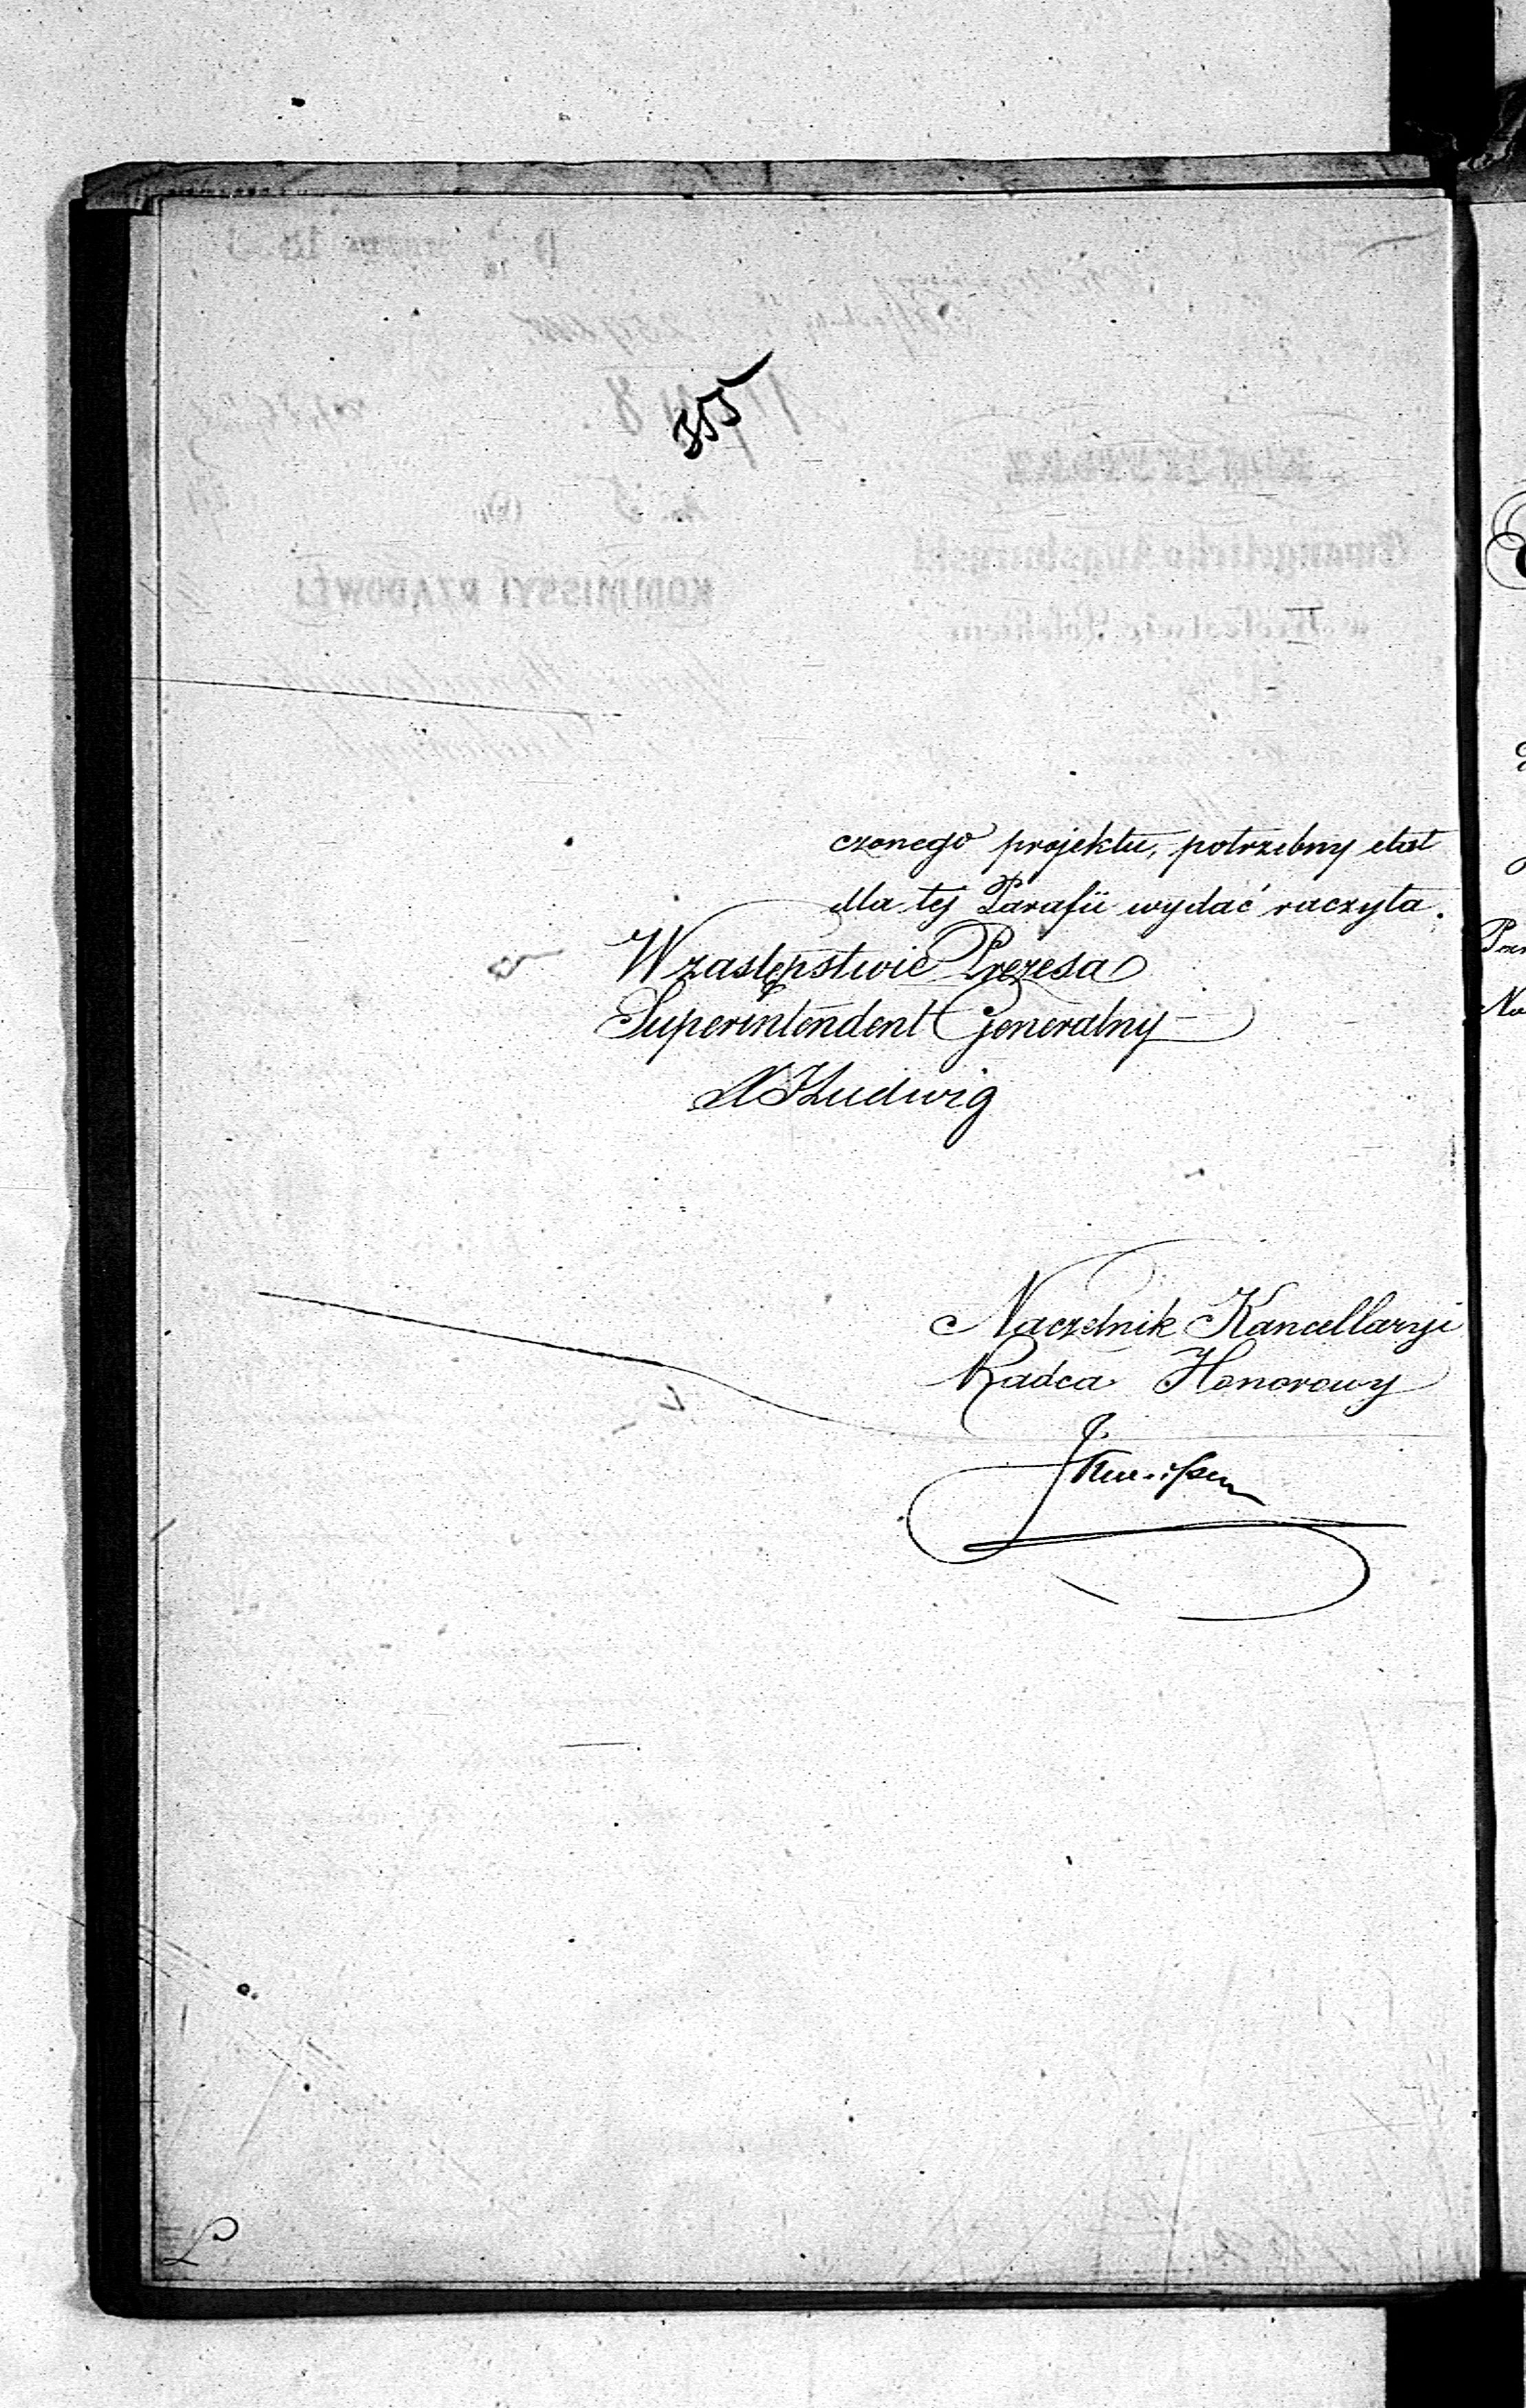 355
czonego projektu, potrzebny etat
dla tej Parafii wydać raczyła.
W zastępstwie Prezesa
Superintendent Generalny
Ludwig
Naczelnik Kancellaryi
Radca Honorowy